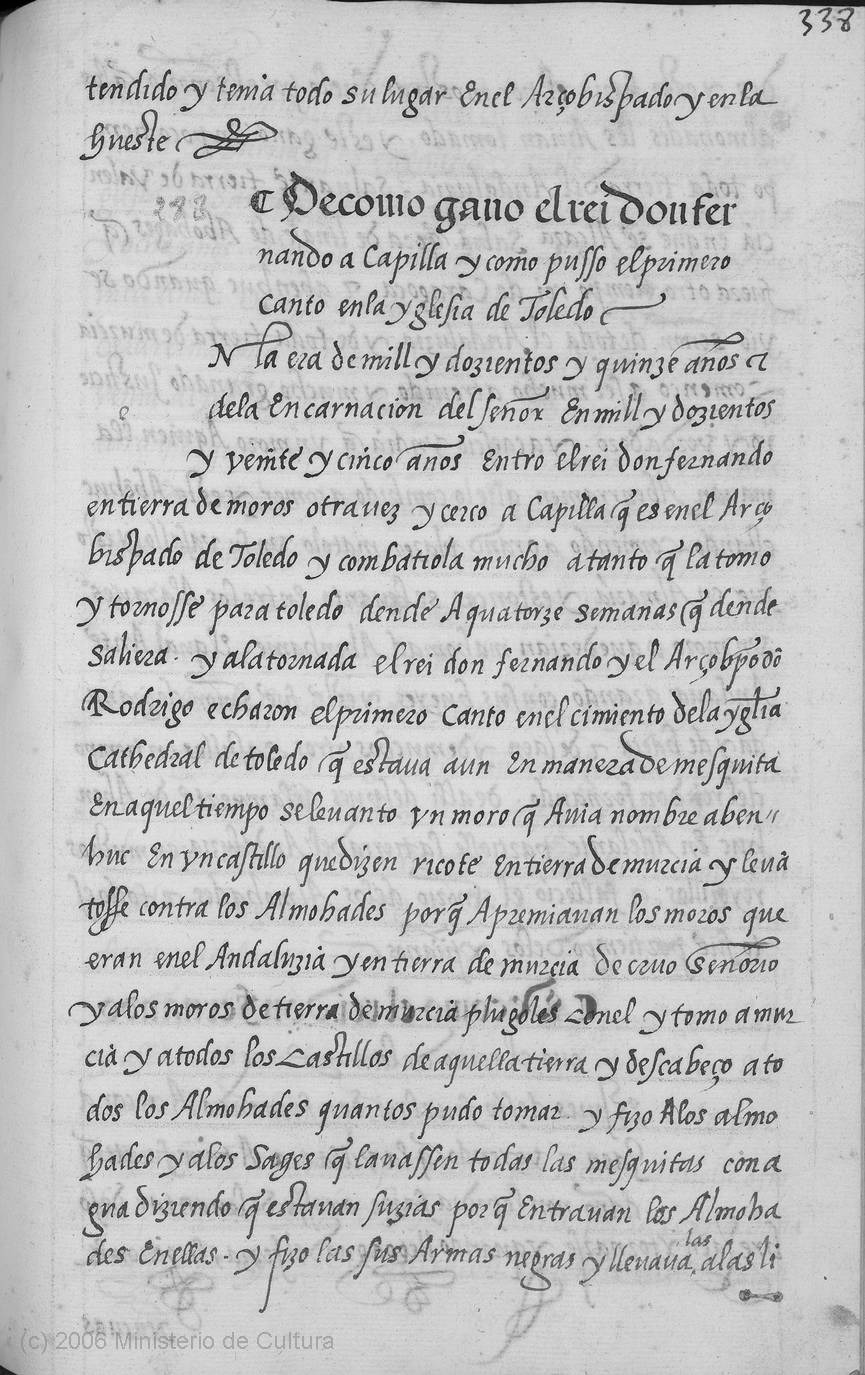 338
tendido y tenia todo su lugar Enel Arçobispado y en la
hueste
283
¶ De como gano el rei don fer
nando a Capilla y como pusso el primero
Canto en la yglesia de Toledo
N la era de mill y dozientos y quinze años &
e
dela Encarnacion del señor En mill y dozientos
y veinte y cinco años Entro el rei don fernando
en tierra de moros otra uez y cerco a Capilla q̃ es enel Arço
bispado de Toledo y combatiola mucho atanto q̃ la tomo
y tornosse para toledo dende A quatorze semanas q̃ dende
saliera. y ala tornada el rei don fernando y el Arçobp̃o dõ
Rodrigo echaron el primero Canto enel cimiento dela ygl̃ia
Cathedral de toledo q̃ estaua aun En manera de mesquita
En aquel tiempo se leuanto vn moro q̃ Auia nombre aben//
huc En vn castillo que dizen ricote En tierra de murcia y leuã
tosse contra los Almohades porq̃ Apremiauan los moros que
eran enel Andaluzia y en tierra de murcia de cruo señorio
y alos moros de tierra de murcia plugoles conel y tomo a mur
cia y a todos los Castillos de aquella tierra y descabeço a to
dos los Almohades quantos pudo tomar y fizo Alos almo
hades y alos Sages q̃ lauassen todas las mesquitas con a
gua diziendo q̃ estauan suzias porq̃ Entrauan los Almoha
des En ellas. y fizo las sus Armas negras y lleuaua las alas li
(c) 2006 Ministerio de Cultura